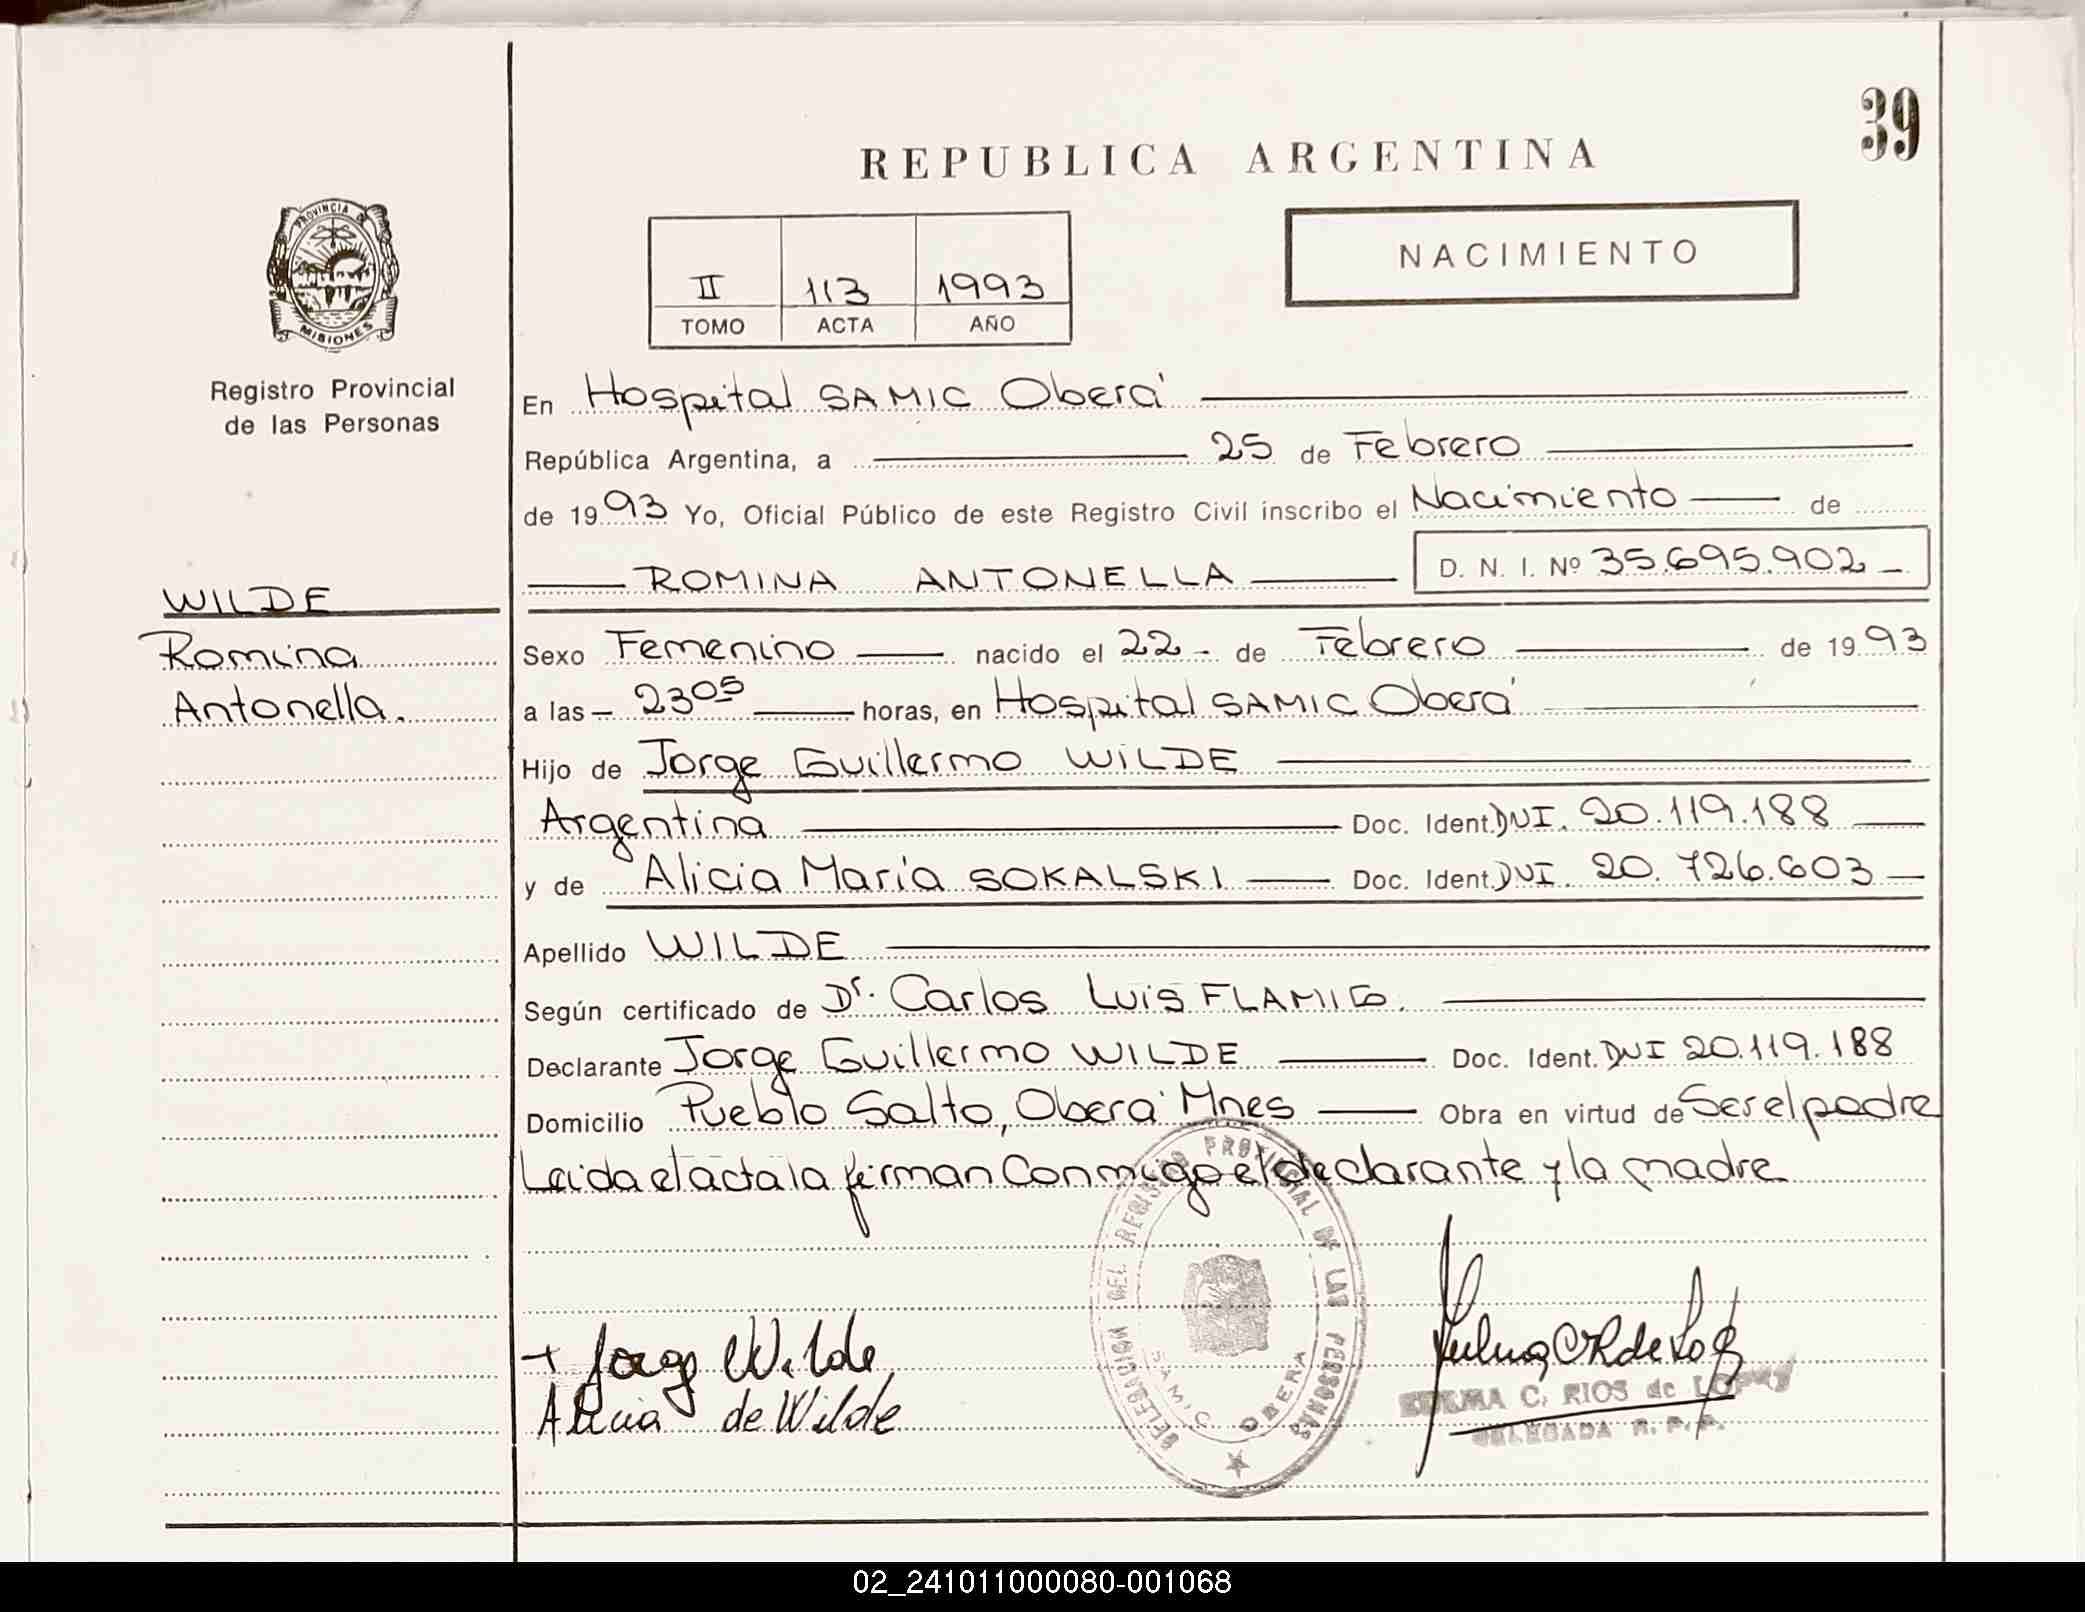 39
REPUBLICA ARGENTINA
PROVINCIA DE
MISIONES
II 113 1993
TOMO ACTA AÑO
NACIMIENTO
Registro Provincial
de las Personas
En Hospital SAMIC Oberá
República Argentina, a 25 de Febrero
de 1993 Yo, Oficial Público de este Registro Civil inscribo el Nacimiento de
ROMINA ANTONELLA D. N. I. Nº 35.695.902
WILDE
Romina
Antonella.
Sexo Femenino nacido el 22 de Febrero de 1993
a las 2305 horas, en Hospital SAMIC Oberá
Hijo de Jorge Guillermo WILDE
Argentina Doc. Ident. DNI. 20.119.188
y de Alicia María SOKALSKI Doc. Ident. DNI. 20.726.603
Apellido WILDE
Según certificado de Dr. Carlos Luis
Declarante Jorge Guillermo WILDE Doc. Ident. DNI 20.119.188
Domicilio Pueblo Salto, Oberá Mnes Obra en virtud de Ser el padre
Leida el acta la firman Conmigo el declarante y la madre
DELEGACION DEL REGISTRO PROVINCIAL DE LAS PERSONAS
SAMIC OBERA
Jorge Wilde
Alicia de Wilde
C. RIOS de LOPEZ
DELEGADA R. P. P.
02_241011000080-001068